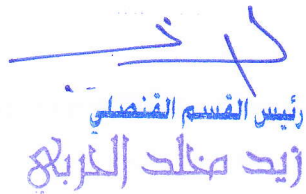 رئيس القسم القنصلي
زيد مخلد الحربي